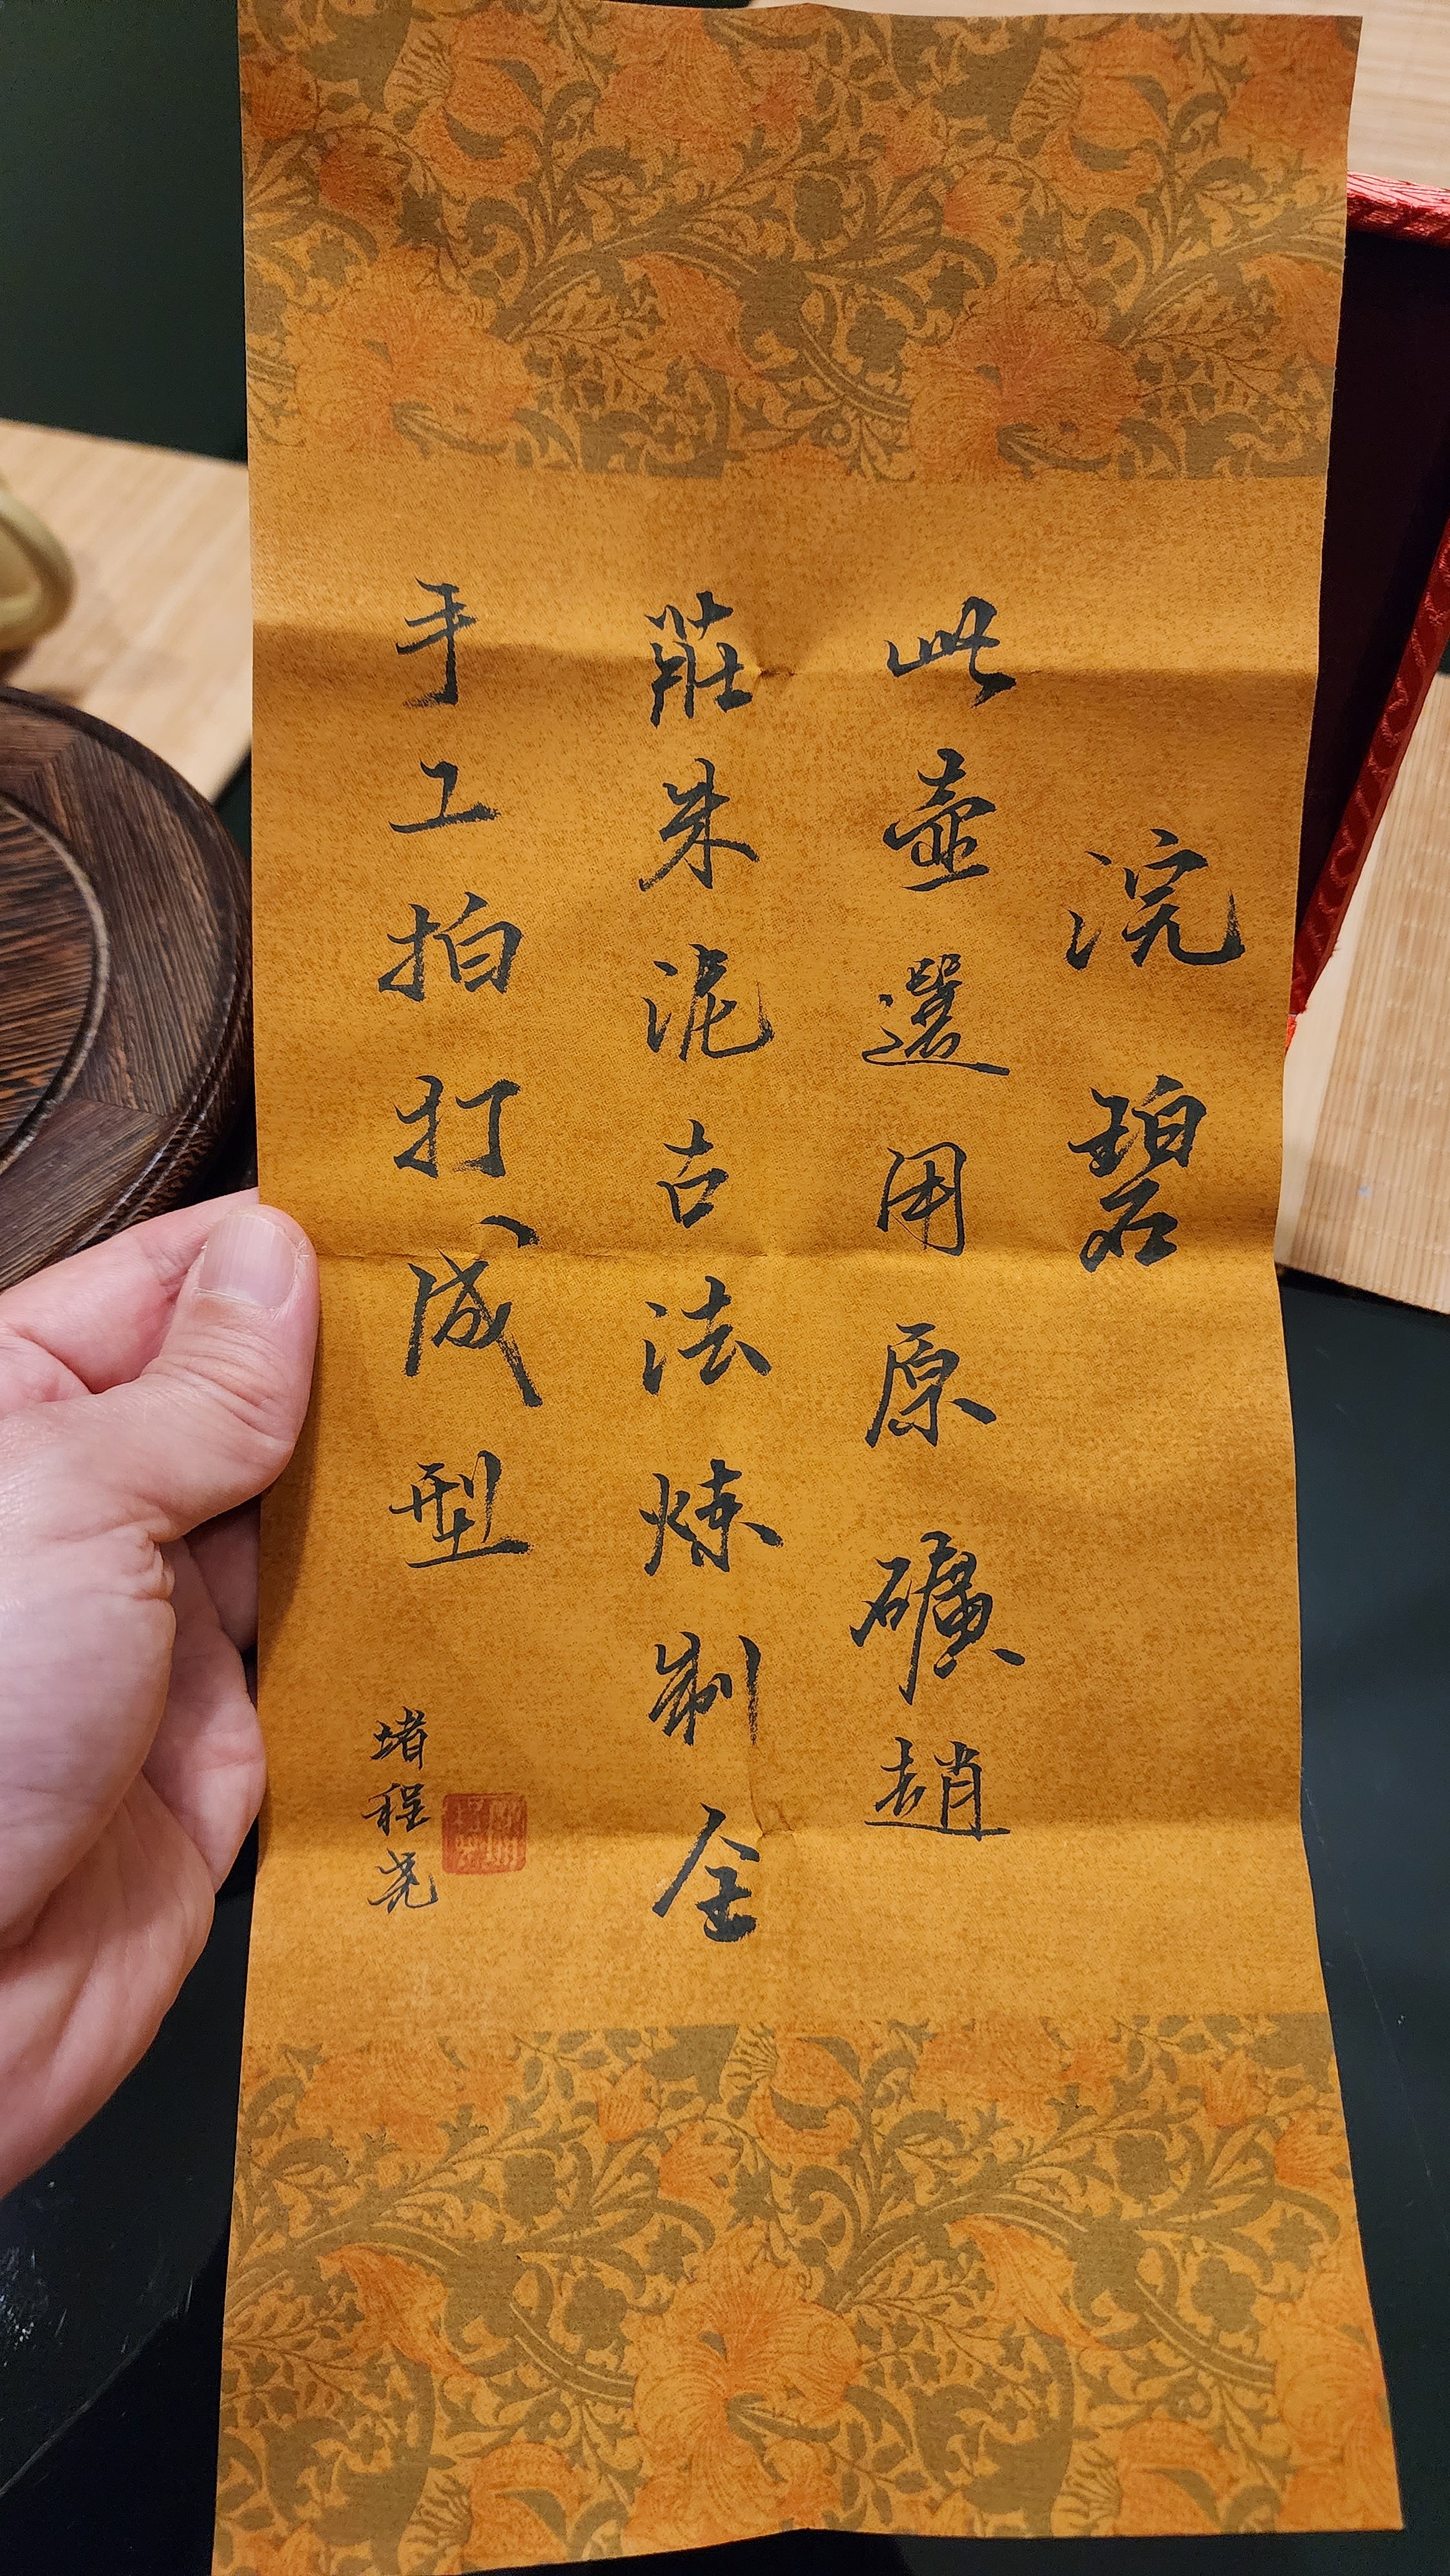 浣碧
此壺選用原礦趙
莊朱泥古法煉制全
手工拍打成型
堵程尧